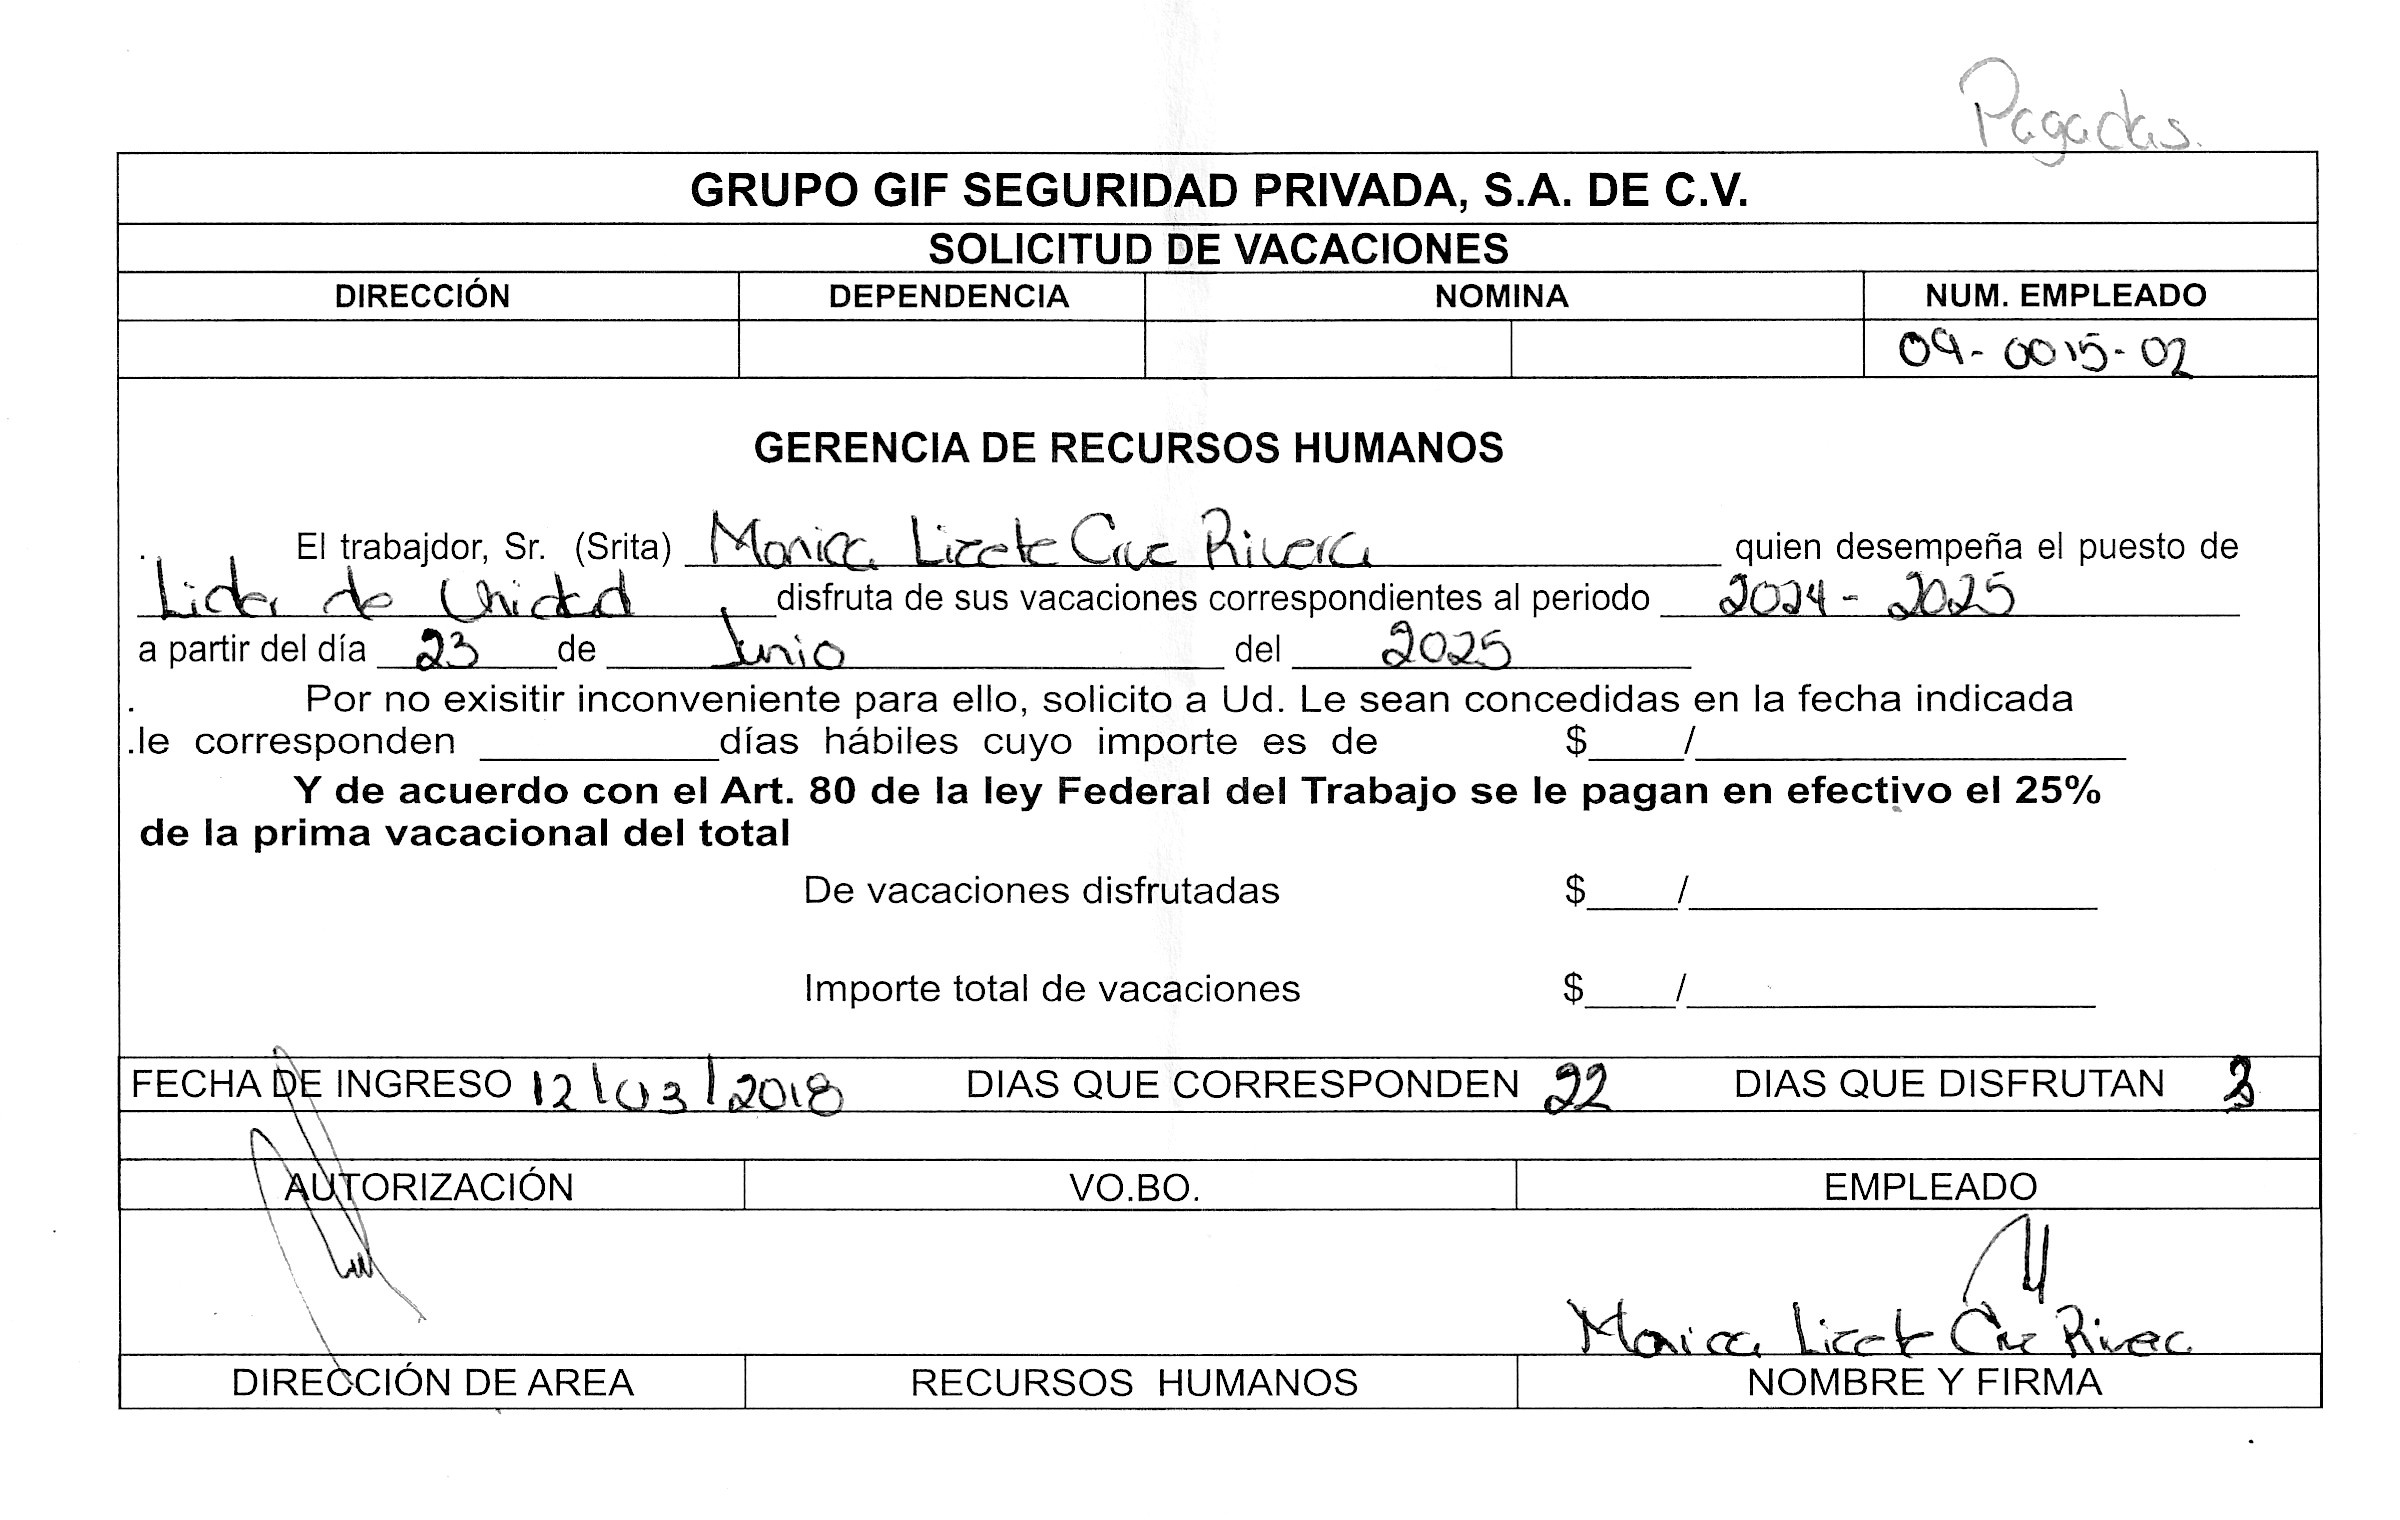 Pagadas.
GRUPO GIF SEGURIDAD PRIVADA, S.A. DE C.V.
SOLICITUD DE VACACIONES
DIRECCIÓN DEPENDENCIA NOMINA NUM. EMPLEADO
09-0015-02
GERENCIA DE RECURSOS HUMANOS
. El trabajdor, Sr. (Srita) Monica Lizete Cruz Rivera quien desempeña el puesto de
Lider de Unidad disfruta de sus vacaciones correspondientes al periodo 2024 - 2025
a partir del día 23 de Junio del 2025
. Por no exisitir inconveniente para ello, solicito a Ud. Le sean concedidas en la fecha indicada
.le corresponden ________ días hábiles cuyo importe es de $____/________
Y de acuerdo con el Art. 80 de la ley Federal del Trabajo se le pagan en efectivo el 25%
de la prima vacacional del total
De vacaciones disfrutadas $____/________
Importe total de vacaciones $____/________
FECHA DE INGRESO 12/03/2018 DIAS QUE CORRESPONDEN 22 DIAS QUE DISFRUTAN
AUTORIZACIÓN VO.BO. EMPLEADO
Monica Lizete Cruz Rivera
DIRECCIÓN DE AREA RECURSOS HUMANOS NOMBRE Y FIRMA